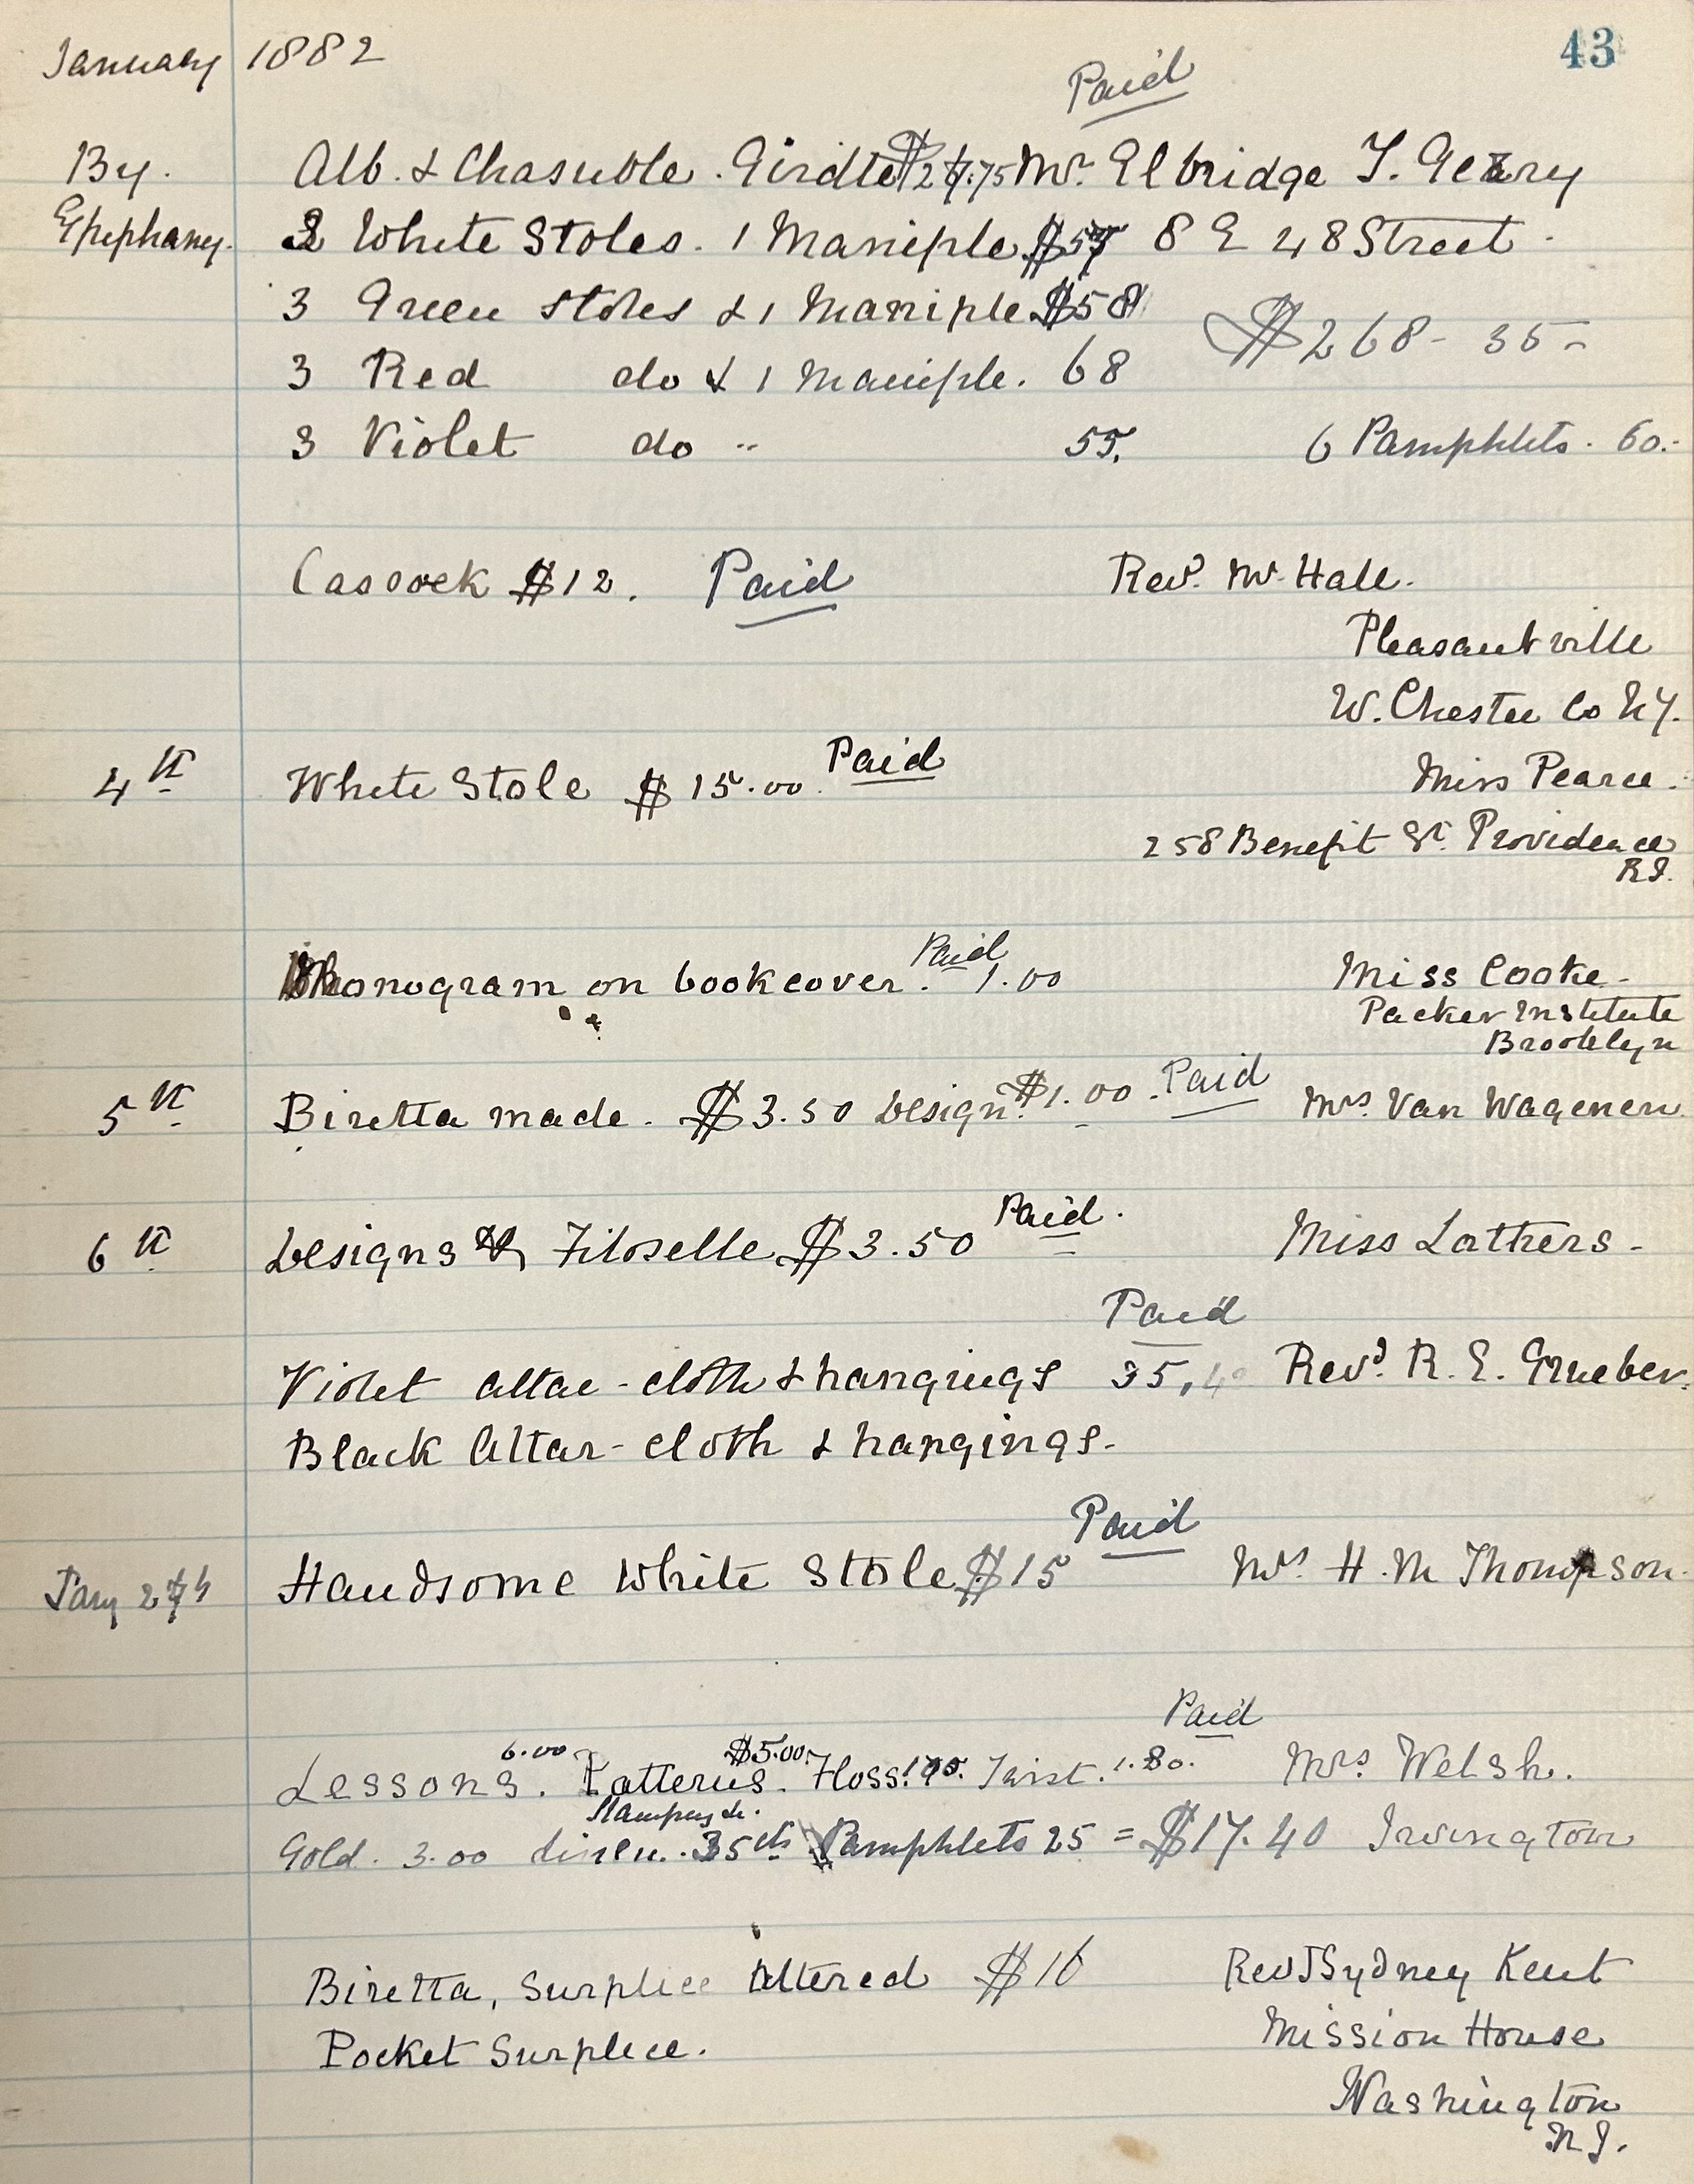 43
January 1882
Paid
By. Alb. & Chasuble. Girdle Mr. Elbridge T. Gerry
Epiphany. White Stoles. 1 Maniple 8 E 48 Street.
3 Green Stoles & 1 Maniple $58
$268-35-
3 Red do & 1 Maniple. 68
3 Violet do " 55. 6 Pamphlets. 60.-
Cassock $12. Paid Revd. Mr. Hall.
Pleasantville
W. Chester Co N.Y.
4th White Stole $15.00. Paid Miss Pearce.
258 Benefit St. Providence
R.I.
Monogram on bookcover. Paid 1.00 Miss Cooke-
Packer Institute
Brooklyn
5th Biretta made. $3.50 Design. $1.00. Paid Mrs. Van Wagenen
6th Designs & Filoselle $3.50 Paid. Miss Lathers-
Paid
Violet altar-cloth & hangings 35,40 Revd. R. E. Grueber.
Black Altar-cloth & hangings-
Paid
Jany Handsome White Stole $15 H. M Thompson.
Paid
6.00 $5.00.
Lessons. Patterns. Floss. Twist. 1.80. Mrs Welsh.
Stamping &c.
Gold. 3.00 Linen. 35cts Pamphlets 25 = $17.40 Irvington
Biretta, Surplice altered $16 Rev J Sydney Kent
Pocket Surplice. Mission House
Washington
N J.